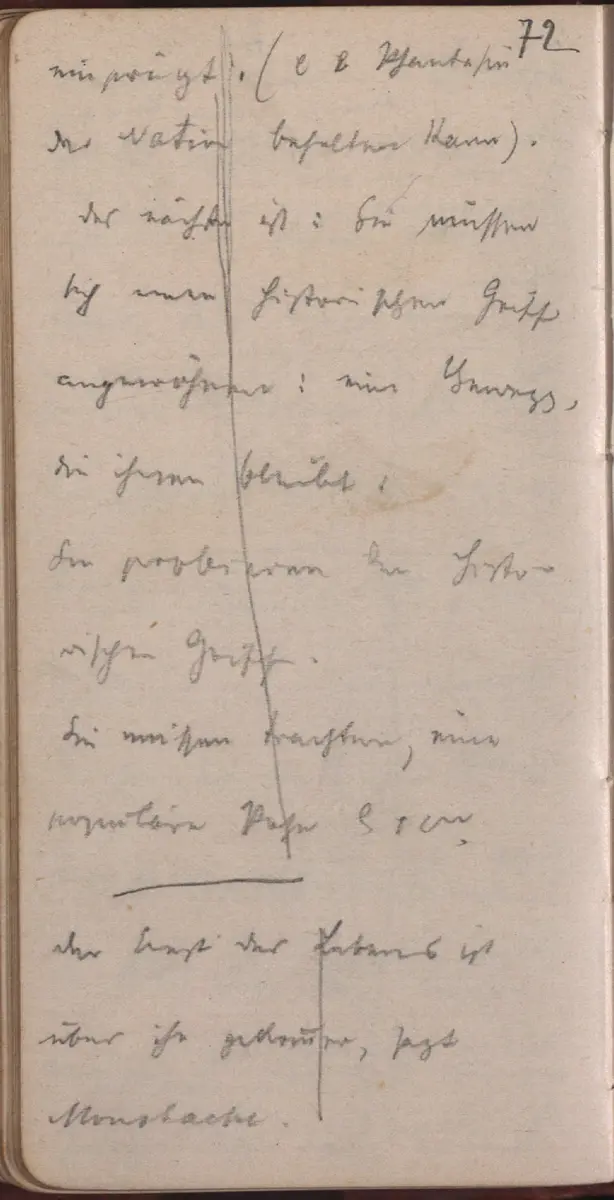 72
einprägt. (           Phantasie
der Nation behalten kann).
der nächste ist: Sie müssen
sich einen historischen Griff
angewöhnen: eine
die ihnen bleibt:
Sie probieren den histo-
rischen Griff.
Sie müssen trachten, eine
populäre
der           des Lebens ist
über ihn gekom̅en, sagt